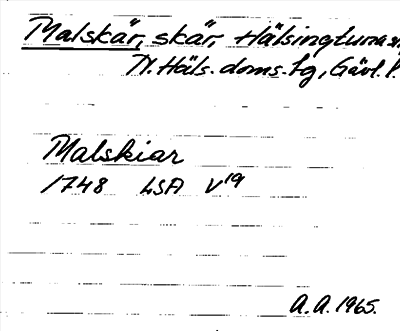 Malskär, skär, Hälsingtuna sn,
N. Häls. doms. tg, Gävl. l.
Malskiar
1748 LSA V19
A.A. 1965.